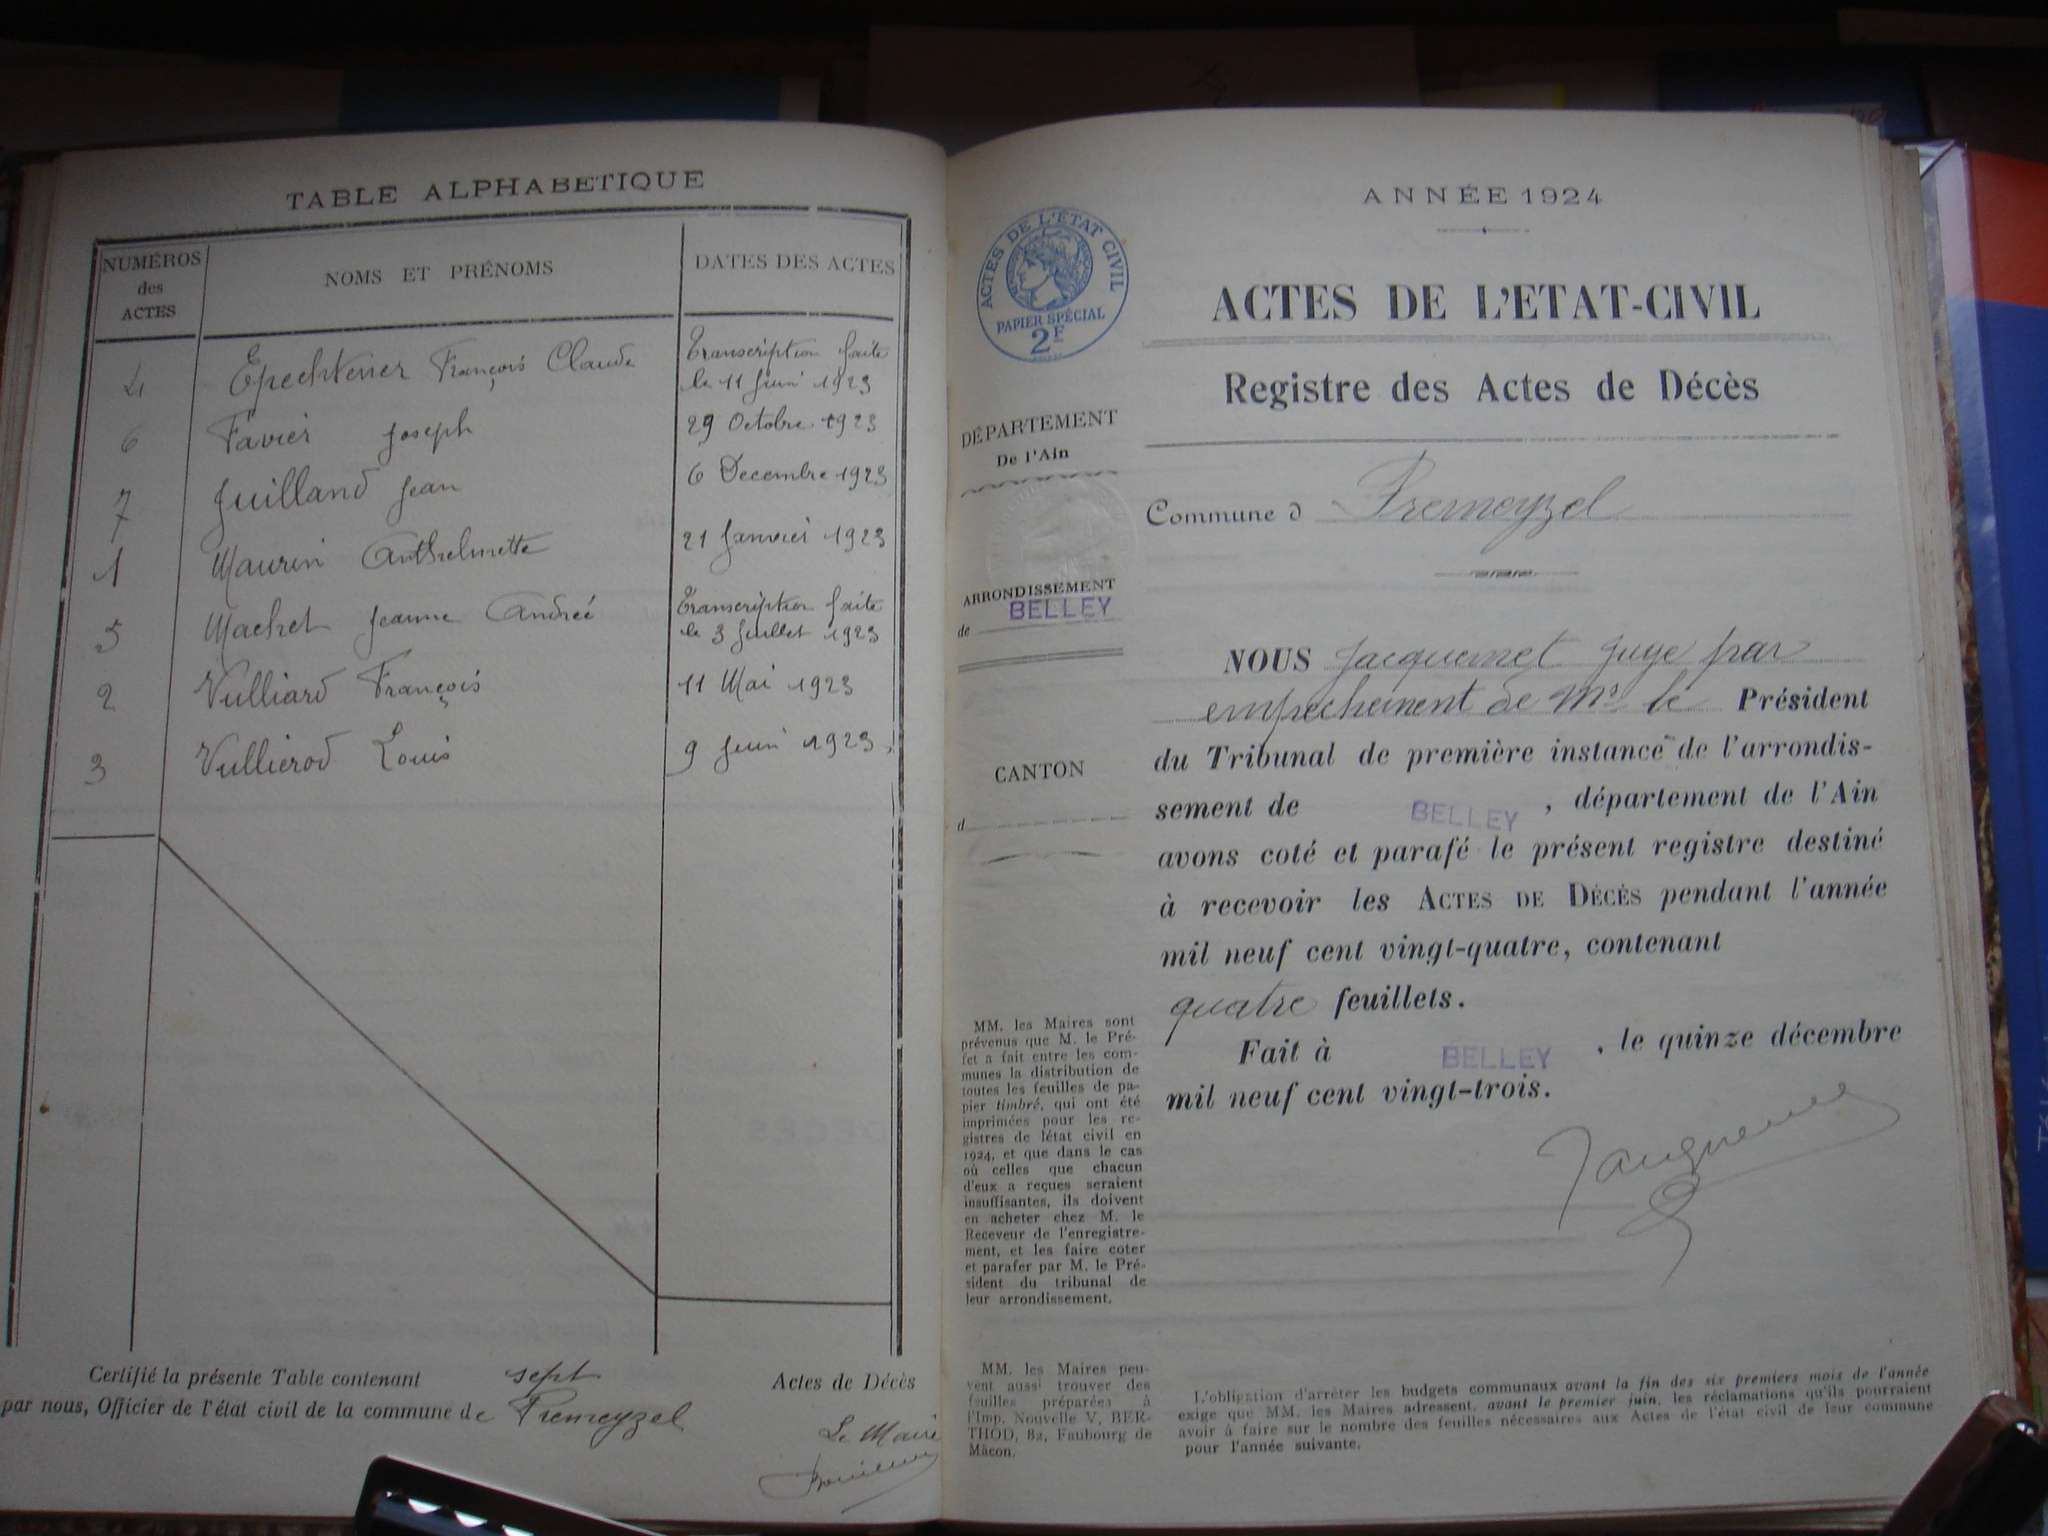 TABLE ALPHABETIQUE
NUMÉROS
des
ACTES
NOMS ET PRÉNOMS
DATES DES ACTES
4 Epechtener François Claude Transcription faite
le 11 Juin 1923
6 Favier Joseph 29 Octobre 1923
7 Juilland Jean 6 Decembre 1923
1 Maurin Anthelmette 21 Janvier 1923
5 Machet Jeanne Andreé Transcription faite
le 3 Juillet 1923
2 Vulliard François 11 Mai 1923
3 Vullierod Louis 9 Juin 1923
Certifié la présente Table contenant sept Actes de Décès
par nous, Officier de l'état civil de la commune de Premeyzel
Le Maire
ANNÉE 1924
ACTES DE L'ÉTAT CIVIL
PAPIER SPÉCIAL
2F
ACTES DE L'ETAT-CIVIL
Registre des Actes de Décès
DÉPARTEMENT
De l'Ain
Commune d Premeyzel
ARRONDISSEMENT
de BELLEY
CANTON
d
NOUS Jacquemet Juge par
empechement de Mr le Président
du Tribunal de première instance de l'arrondis-
sement de BELLEY, département de l'Ain
avons coté et parafé le présent registre destiné
à recevoir les ACTES DE DÉCÉS pendant l'année
mil neuf cent vingt-quatre, contenant
quatre feuillets.
Fait à BELLEY, le quinze décembre
mil neuf cent vingt-trois.
Jacquemet
MM. les Maires sont
prévenus que M. le Pré-
fet a fait entre les com-
munes la distribution de
toutes les feuilles de pa-
pier timbré, qui ont été
imprimées pour les re-
gistres de létat civil en
1924, et que dans le cas
où celles que chacun
d'eux a reçues seraient
insuffisantes, ils doivent
en acheter chez M. le
Receveur de l'enregistre-
ment, et les faire coter
et parafer par M. le Pré-
sident du tribunal de
leur arrondissement.
MM. les Maires peu-
vent aussi trouver des
feuilles préparées à
l'Imp. Nouvelle V, BER-
THOD, 82, Faubourg de
Mâcon.
L'obligation d'arrêter les budgets communaux avant la fin des six premiers mois de l'année
exige que MM. les Maires adressent, avant le premier juin, les réclamations qu'ils pourraient
avoir à faire sur le nombre des feuilles nécessaires aux Actes de l'état civil de leur commune
pour l'année suivante.